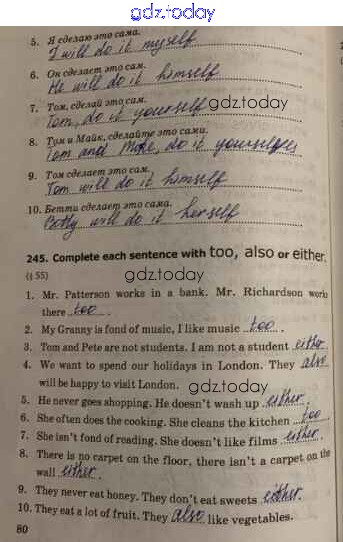 gdz.today
5. Я сделаю это сама.
I will do it myself
6. Он сделает это сам.
He will do it himself
7. Том, сделай это сам.
Tom, do it yourself gdz.today
8. Том и Майк, сделайте это сами.
Tom and Mike, do it yourselfes
9. Том сделает это сам.
Tom will do it himself
10. Бетти сделает это сама.
Betty will do it herself
245. Complete each sentence with too, also or either.
(§ 55)
gdz.today
1. Mr. Patterson works in a bank. Mr. Richardson works
there too.
2. My Granny is fond of music, I like music too.
3. Tom and Pete are not students. I am not a student either.
4. We want to spend our holidays in London. They also
will be happy to visit London. gdz.today
5. He never goes shopping. He doesn't wash up either.
6. She often does the cooking. She cleans the kitchen too.
7. She isn't fond of reading. She doesn't like films either.
8. There is no carpet on the floor, there isn't a carpet on the
wall either.
9. They never eat honey. They don't eat sweets either.
10. They eat a lot of fruit. They also like vegetables.
80
gdz.today